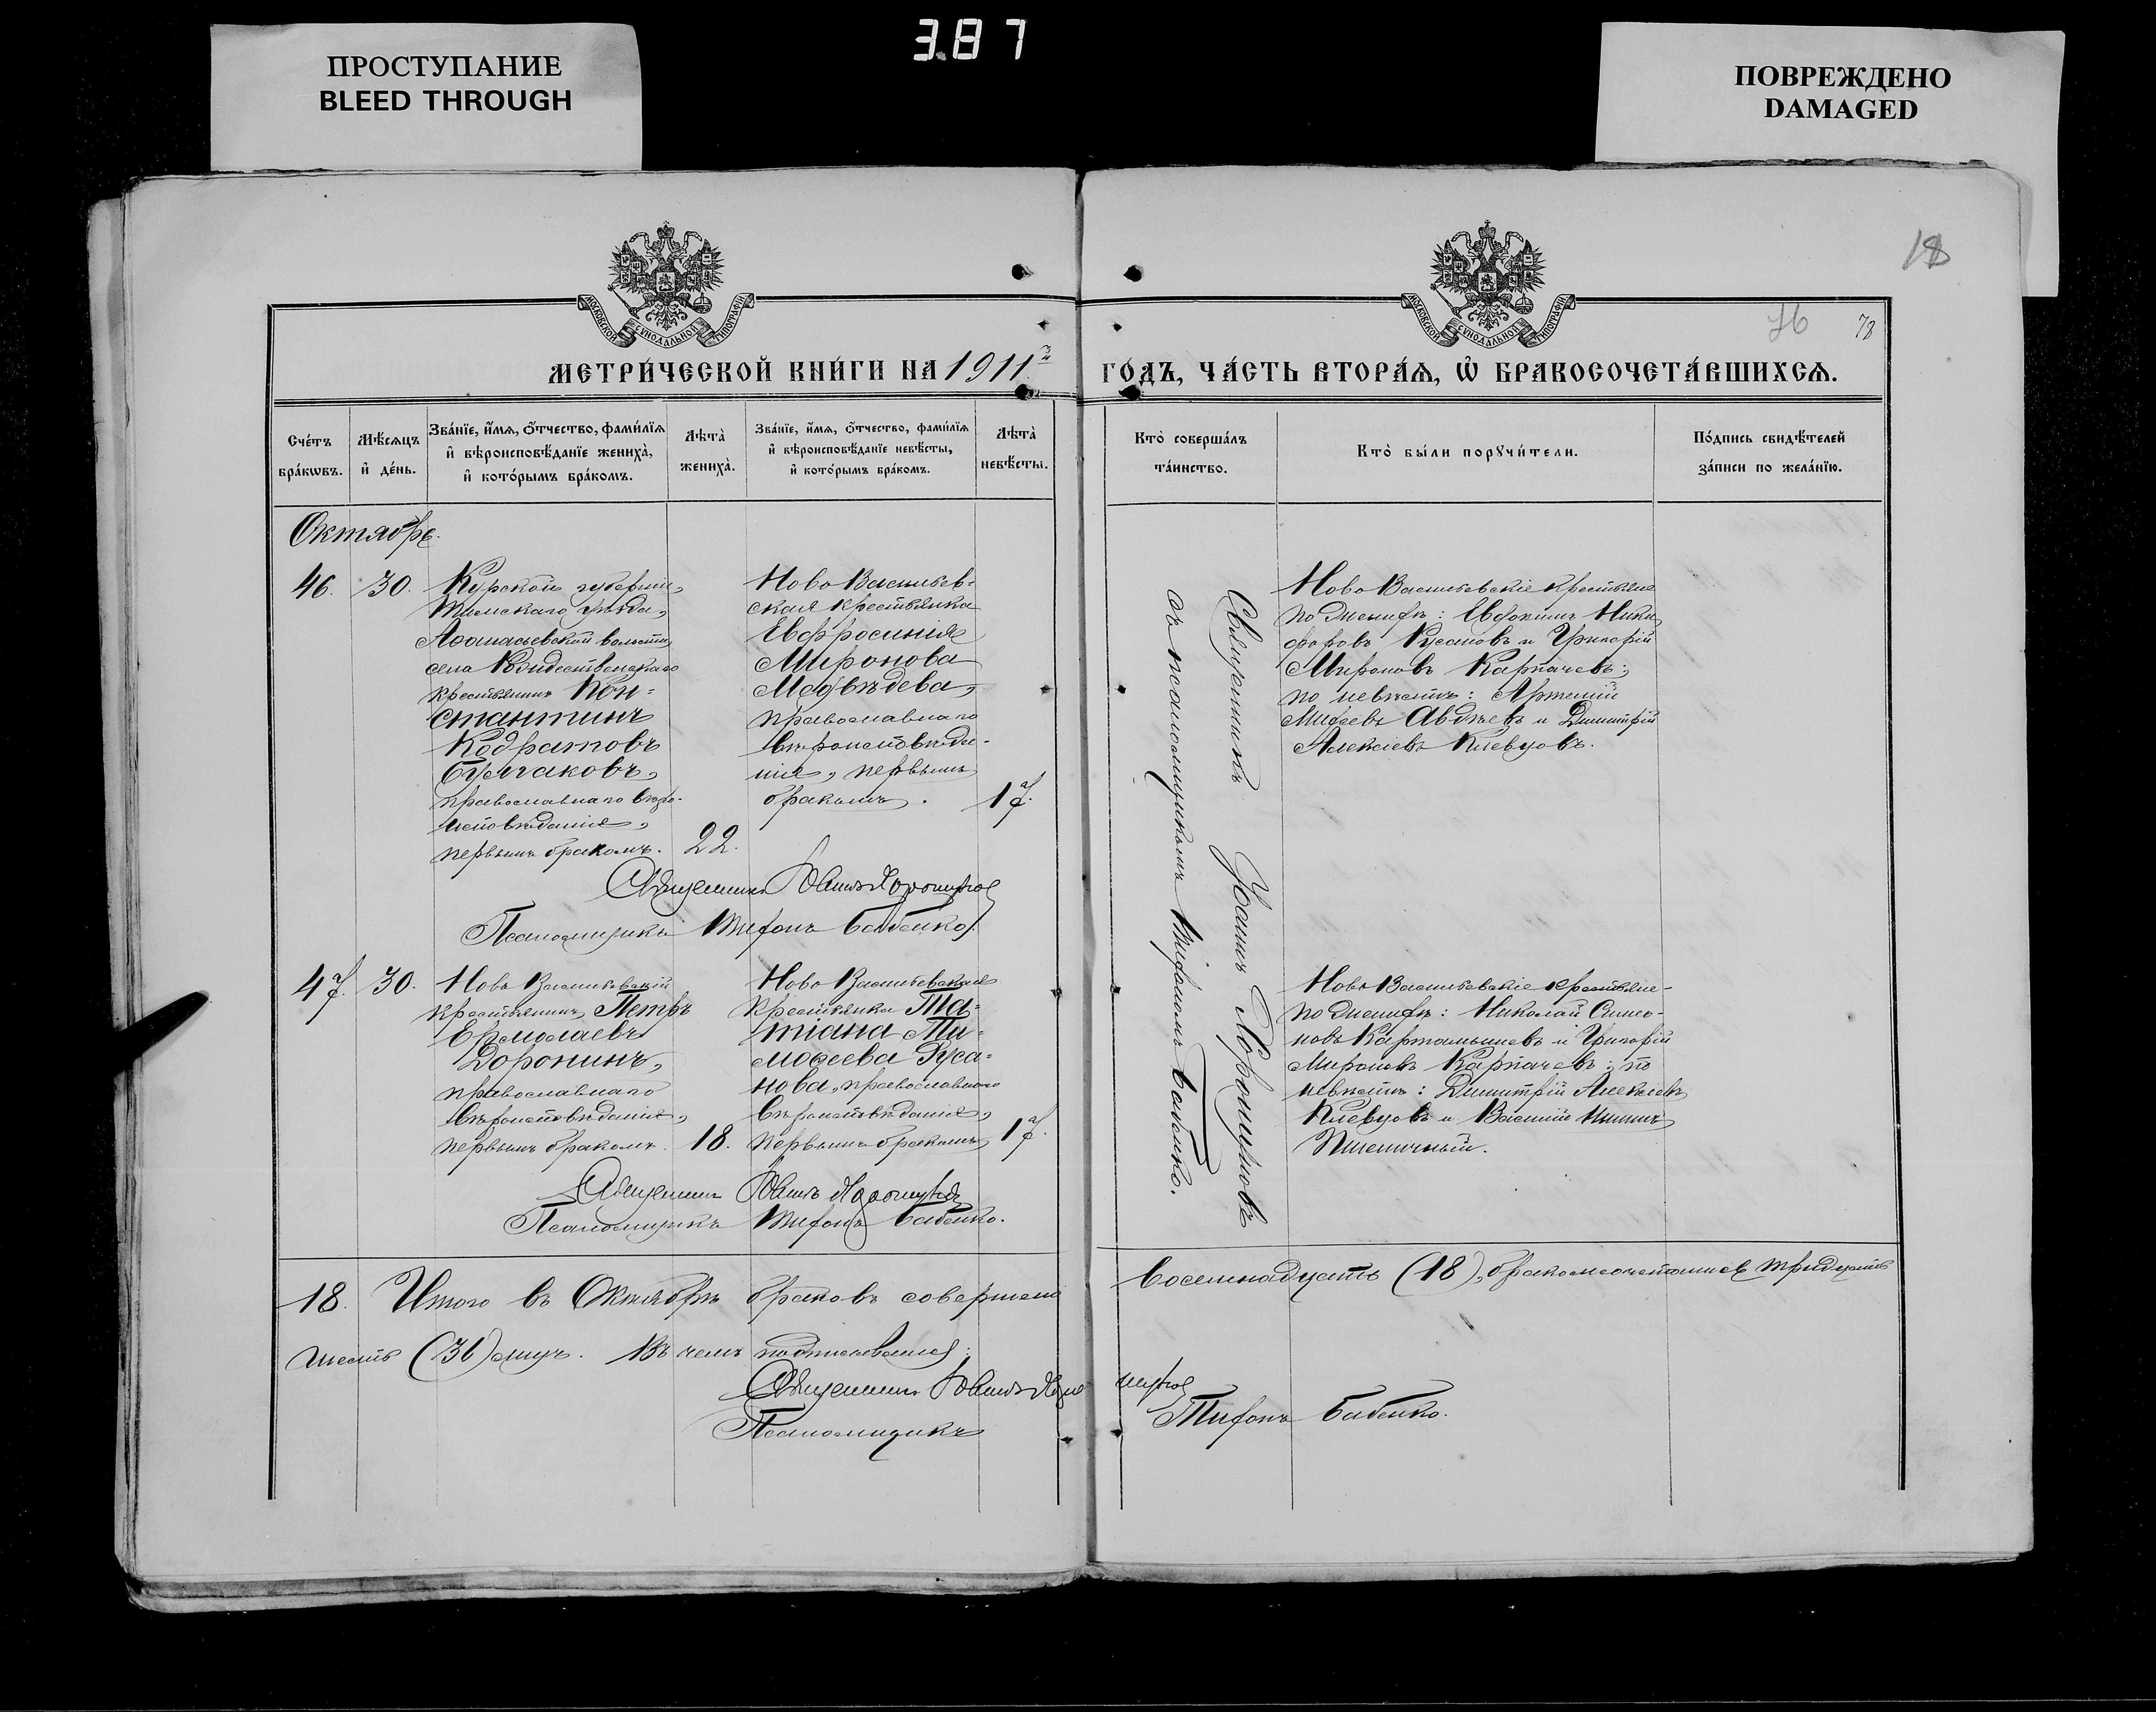 387
ПРОСТУПАНИЕ
BLEED THROUGH
ПОВРЕЖДЕНО
DAMAGED
18
76
78
МОСКОВСКОЙ СѴНОДАЛЬНОЙ ТИПОГРАФІИ
МОСКОВСКОЙ СѴНОДАЛЬНОЙ ТИПОГРАФІИ
МЕТРИ́ЧЕСКОЙ КНИ́ГИ НА 1911
ГО́ДЪ, ЧА́СТЬ ВТОРА́Ѧ, Ѽ БРАКОСОЧЕТА́ВШИХСѦ.
Сче́тъ
бра́кѡвъ.
Мѣ́сѧцъ
и҆ де́нь.
Зва́нїе, и҆́мѧ, ѻ҆́тчество, фами́лїѧ
и҆ вѣроисповѣ́данїе жениха̀,
и҆ кото́рымъ бра́комъ.
Лѣта̀
жениха̀.
Зва́нїе, и҆́мѧ, ѻ҆́тчество, фами́лїѧ
и҆ вѣроисповѣ́данїе невѣ́сты,
и҆ кото́рымъ бра́комъ.
Лѣта̀
невѣ́сты.
Кто̀ соверша́лъ
та́инство.
Кто̀ бы́ли порꙋчи́тели.
По́дпись свидѣ́телей
за́писи по жела́нїю.
Октябрь.
46.
30.
Курской губерніи,
Тимскаго уѣзда,
Аѳанасьевской волости,
села Рождественскаго
крестьянинъ Кон=
стантинъ
Кодратовъ
Булгаковъ,
православнаго вѣро-
исповѣданія,
первымъ бракомъ.
22.
Ново Васильев=
ская крестьянка
Евфросинія
Миронова
Медвѣдева,
православнаго
вѣроисповѣда-
нія, первымъ
бракомъ.
17.
Священникъ Іоаннъ Хорошуновъ
съ псаломщикомъ Трифономъ Бабенко.
Ново Васильевскіе крестьяне
по женихѣ: Евдокимъ Ники
форовъ Русановъ и Григорій
Мироновъ Карпачевъ;
по невѣстѣ: Артемій
Авдѣевъ и Димитрій
Алексіевъ Клевцовъ.
Священникъ Іоаннъ
Псаломщикъ Трифонъ Бабенко.
47.
30.
Ново Васильевскій
крестьянинъ Петръ
Ермолаевъ
Доронинъ,
православнаго
вѣроисповѣданія,
первымъ бракомъ.
18.
Ново Васильевская
крестьянка Та=
тіана Ти=
моѳеева Руса=
нова, православнаго
вѣроисповѣданія,
первымъ бракомъ
17.
Ново Васильевскіе крестьяне
по женихѣ: Николай Симео-
новъ Картамышевъ и Григорій
Мироновъ Карпачевъ; по
невѣстѣ: Димитрій Алексіевъ
Клевцовъ и Василій
Пшеничный.
Священникъ Іоаннъ
Псаломщикъ Трифонъ Бабенко.
18. Итого въ Октябрѣ браковъ совершено восемнадцать (18), бракомсочетанныхъ тридцать
шесть (36) лицъ. Въ чемъ подписываемся:
Священникъ Іоаннъ
Псаломщикъ Трифонъ Бабенко.